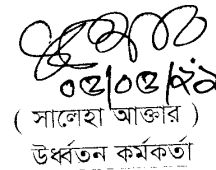 ০৫/০৫/২১
( সালেহা আক্তার )
উর্ধ্বতন কর্মকর্তা